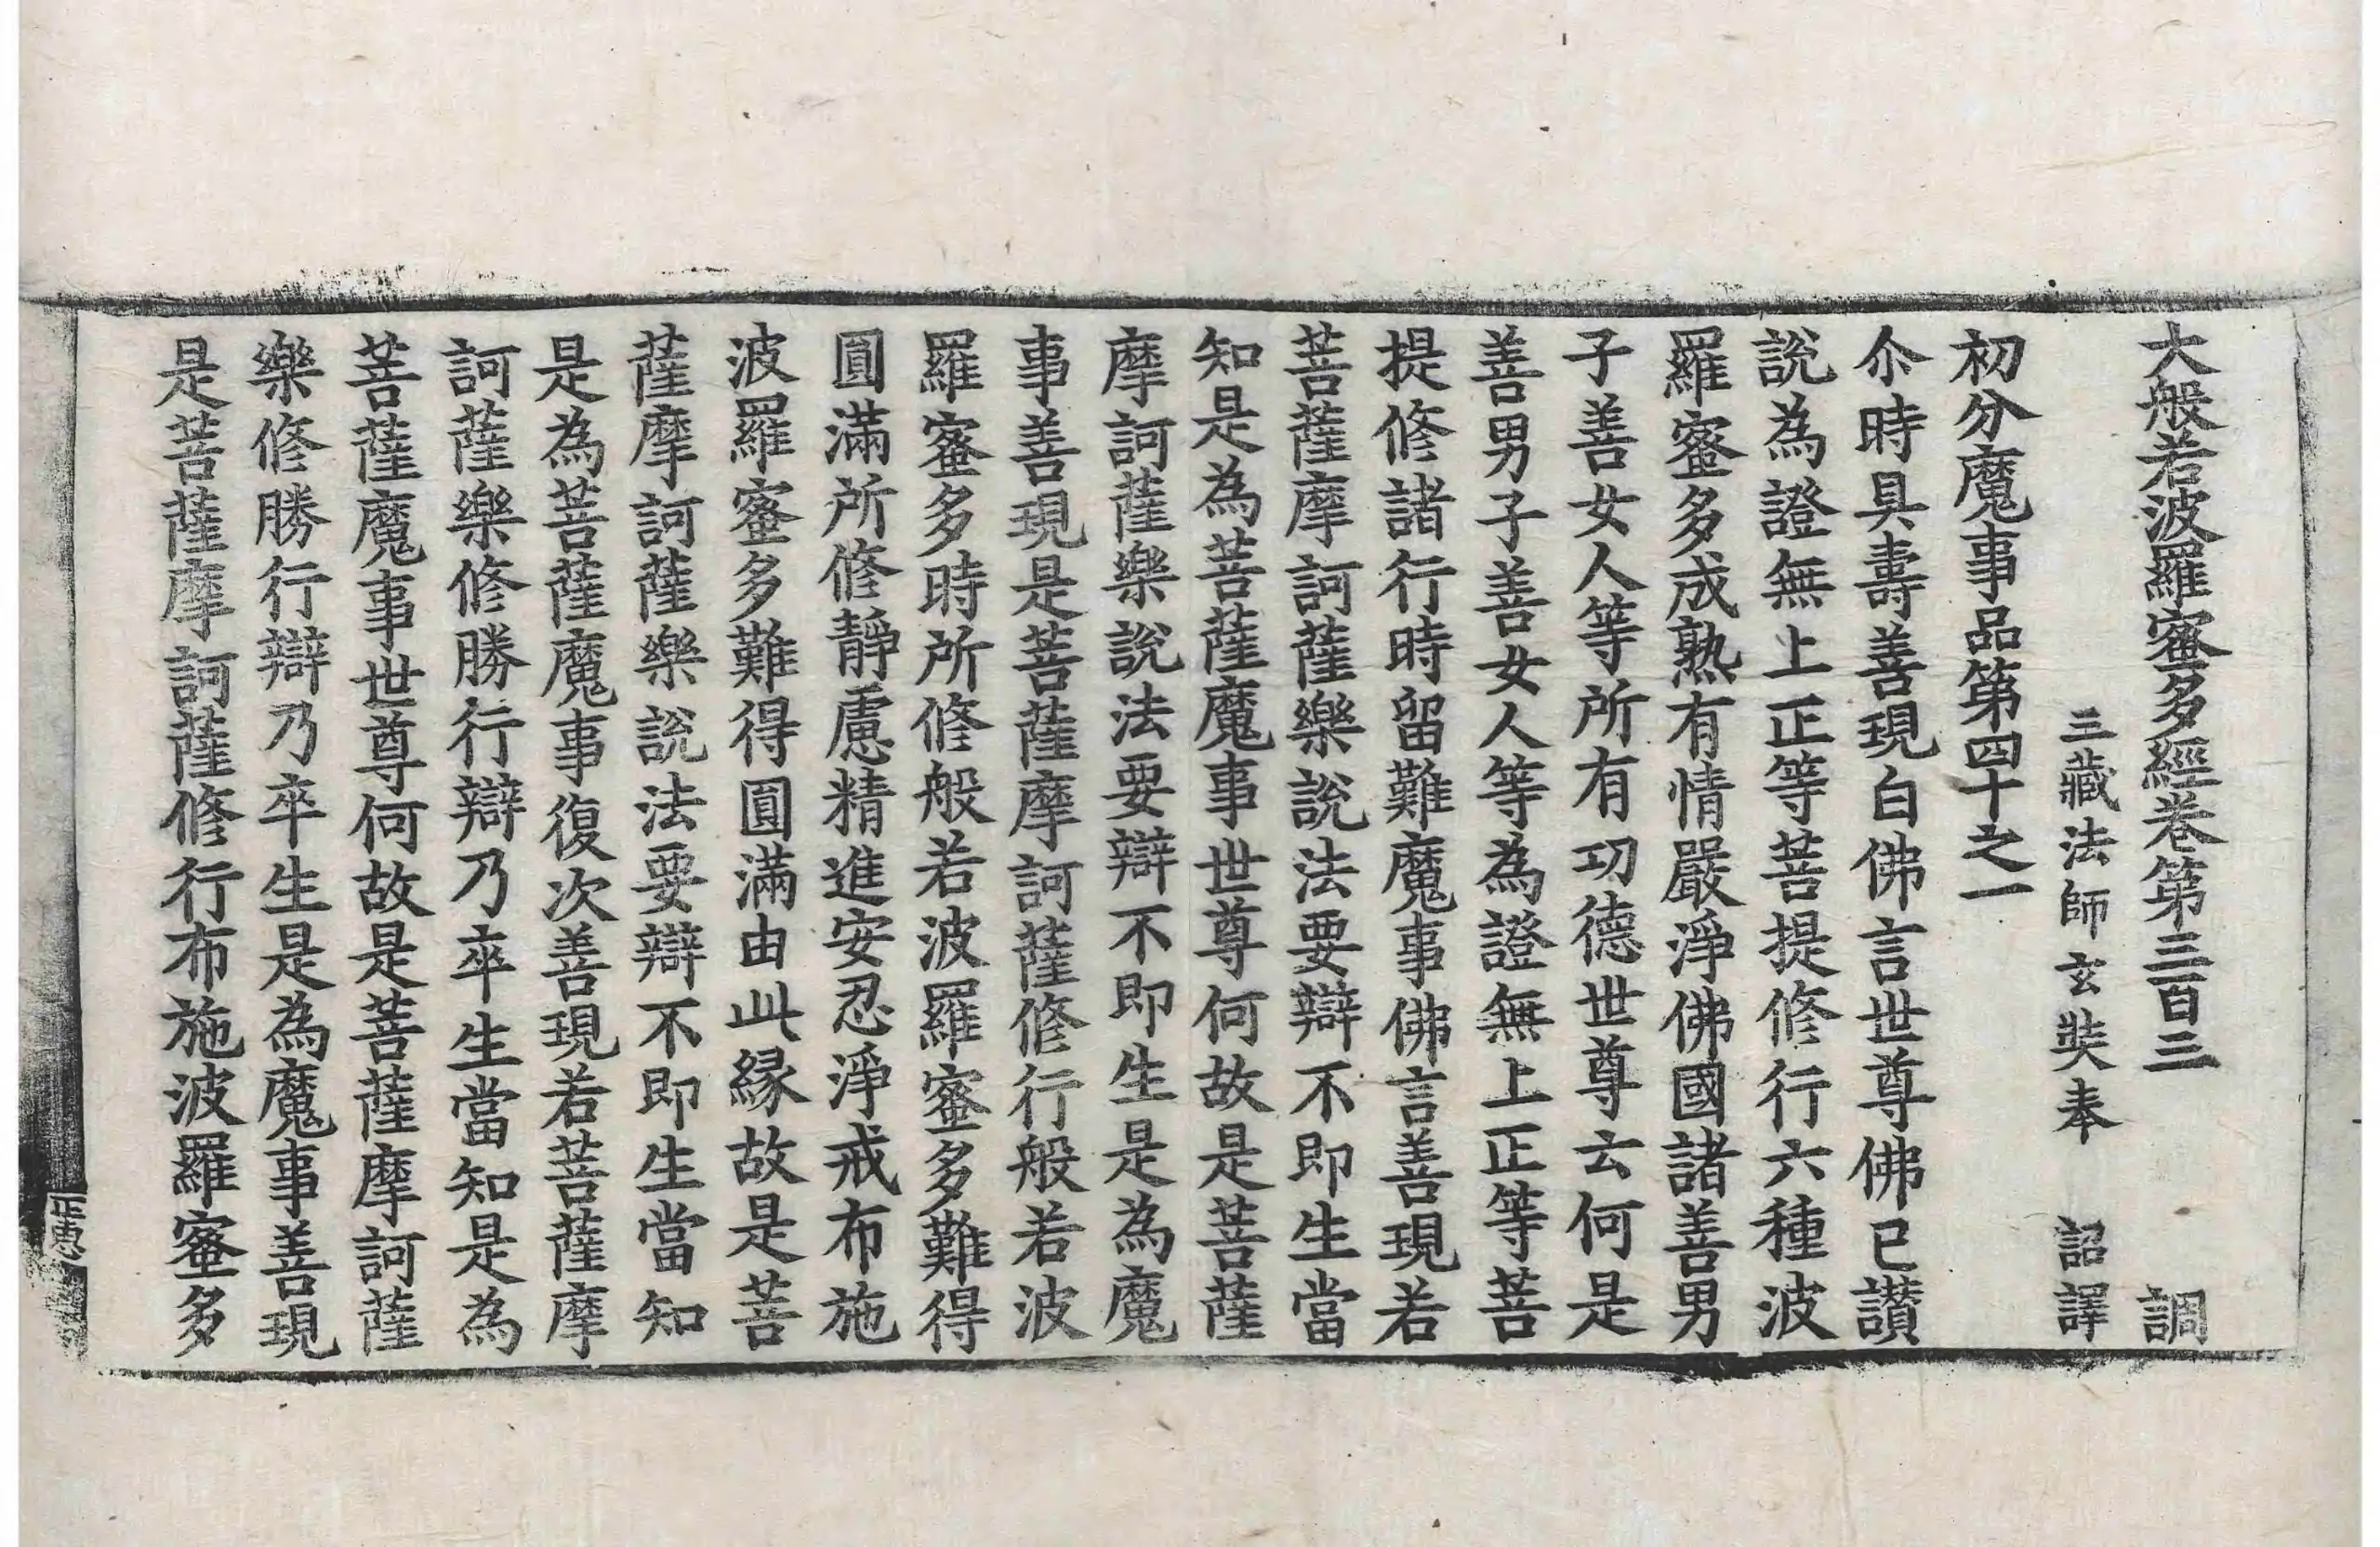 大般若波羅蜜多經卷第三百三 調
三藏法師玄奘奉 詔譯
初分魔事品第四十之一
尒時具壽善現白佛言世尊佛已讃
說為證無上正等菩提修行六種波
羅蜜多成熟有情嚴淨佛國諸善男
子善女人等所有功德世尊云何是
善男子善女人等為證無上正等菩
提修諸行時留難魔事佛言善現若
菩薩摩訶薩樂說法要辯不即生當
知是為菩薩魔事世尊何故是菩薩
摩訶薩樂說法要辯不即生是為魔
事善現是菩薩摩訶薩修行般若波
羅蜜多時所修般若波羅蜜多難得
圓滿所修靜慮精進安忍淨戒布施
波羅蜜多難得圓滿由此緣故是菩
薩摩訶薩樂說法要辯不即生當知
是為菩薩魔事復次善現若菩薩摩
訶薩樂修勝行辯乃卒生當知是為
菩薩魔事世尊何故是菩薩摩訶薩
樂修勝行辯乃卒生是為魔事善現
是菩薩摩訶薩修行布施波羅蜜多